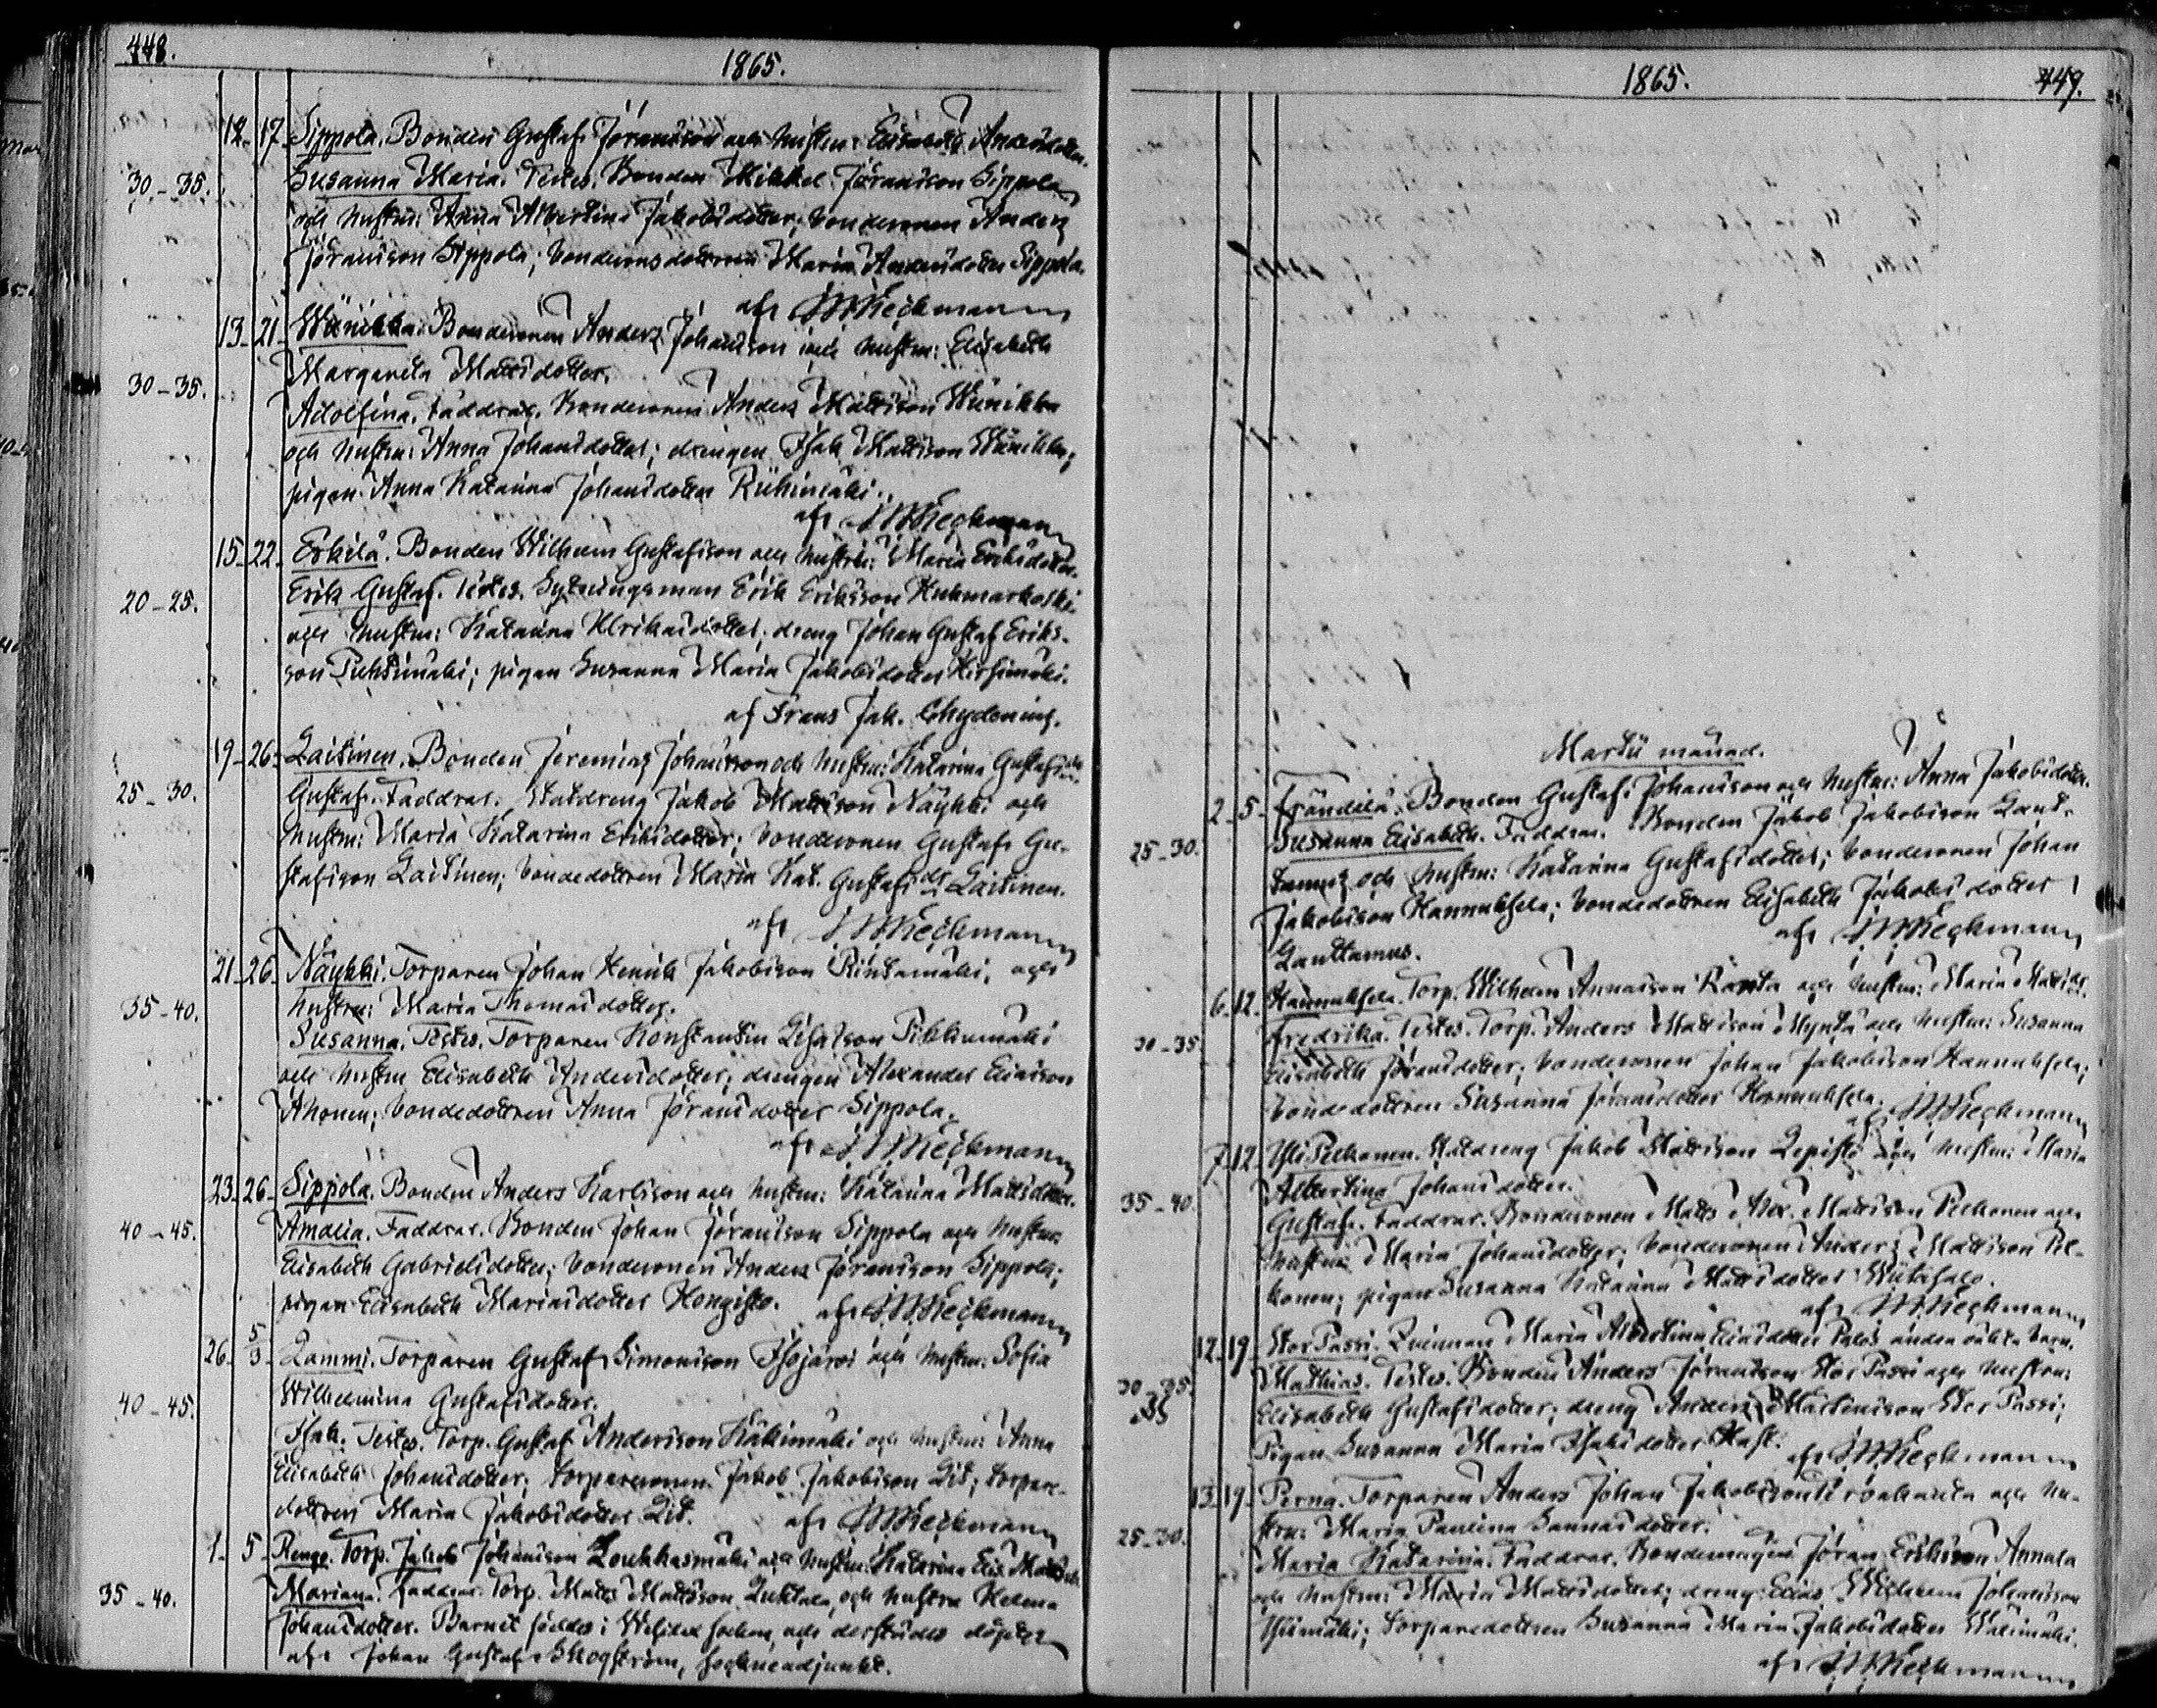 448.
1865.
12. 17. Sippola. Bonden Gustaf Jöransson och hustru: Elisabeth Andersdotter.
30-35. Susanna Maria. Testes. Bonden Mikkel Jöransson Sippola
och hustru: Anna Albertina Jakobsdotter; bondesonen Anders
Jöransson Sippola; bondesonsdottren Maria Andersdotter Sippola.
af
13. 21. Bondesonen Anders Johansson och hustru: Elisabeth
Margareta Mattsdotter.
30-35. Adolfina. Faddrar. Bondesonen Anders Mattsson
och hustru: Anna Johansdotter; drengen Isak Mattsson
pigan Anna Katarina Johansdotter
af
15. 22. Erkilä. Bonden Wilhelm Gustafsson och hustru: Maria Eriksdotter.
20-25. Erik Gustaf. Testes. Sytningsman Erik Eriksson Huhmarkoski
och hustru: Katarina Ulrikasdotter; dreng Johan Gustaf Eriks-
son pigan Susanna Maria Jakobsdotter Hirsimäki.
af Frans Jak. Chydenius.
19. 26. Laitinen. Bonden Jeremias Johansson och hustru: Katarina Gustafsdr
25-30. Gustaf. Faddrar. Statdreng Jakob Mattsson Näykki och
hustru: Maria Katarina Eriksdotter; bondesonen Gustaf Gu-
stafsson Laitinen; bondedottren Maria Kat. Gustafsdr Laitinen.
af
21. 26. Näykki. Torparen Johan Henrik Jakobsson Rintamäki, och
hustru: Maria Thomasdotter.
35-40. Susanna. Testes. Torparen Konstantin
och hustru Elisabeth Andersdotter; drengen Alexander Eliasson
Ahonen; bondedottren Anna Jöransdotter Sippola.
af
23. 26. Sippola. Bonden Anders Karlsson och hustru: Katarina Mattsdotter.
40-45. Amalia. Faddrar. Bonden Johan Jöransson Sippola och hustru
Elisabeth Gabrielsdotter; bondesonen Anders Jöransson Sippola;
pigan Elisabeth Mariasdotter Hongisto. af
26. 5/3 Lammi. Torparen Gustaf Simonsson Isojärvi och hustru: Sofia
Wilhelmina Gustafsdotter.
40-45. Isak. Testes. Torp. Gustaf Andersson Käkimäki och hustru: Anna
Elisabeth Johansdotter; torparesonen Jakob Jakobsson torpare-
dottren Maria Jakobsdotter
af
1. 5. Renge. Torp. Jakob Johansson Loukkasmäki och hustru: Katarina Elis.
35-40. Mariana. Faddrar. Torp. Matts Mattsson Luhtala, och hustru Helena
Johansdotter. Barnet föddes i socken, och derstädes döptes
af Johan Gustaf Skogström, sockneadjunkt.
1865.
449.
Martii månad.
2. 5. Frändilä. Bonden Gustaf Johansson och hustru: Anna Jakobsdotter.
25-30. Susanna Elisabeth. Faddrar. Bonden Jakob Jakobsson Laut-
tamus och hustru: Katarina Gustafsdotter; bondesonen Johan
Jakobsson Hannuksela; bondedottren Elisabeth Jakobsdotter
Lauttamus. af
6. 12. Hannuksela. Torp. Wilhelm Annasson Ranta och hustru: Maria
30-35. Fredrika. Testes. Torp. Anders Mattsson Myntä och hustru: Susanna
Elisabeth Jöransdotter; bondesonen Johan Jakobsson Hannuksela;
bondedottren Susanna Jöransdotter Hannuksela. af
7. 12. Pelkonen. Statdreng Jakob Mattsson Lepistö och hustru: Maria
Albertina Johansdotter.
35-40. Gustaf. Faddrar. Bondesonen Matts Alex. Mattsson Pelkonen och
hustru: Maria Johansdotter; bondesonen Anders Mattsson Pel-
konen; pigan Susanna Katarina Mattsdotter
af
12. 19. Stor Passi. Qvinnan Maria Albertina Eliasdotter andra oäkta barn.
30-35. Mathias. Testes. Bonden Anders Jöransson Stor Passi och hustru:
35
Elisabeth Gustafsdotter; dreng Anders Martinsson Stor Passi;
Pigan Susanna Maria Isaksdotter Hast. af
13. 19. Perna. Torparen Anders Johan Jakobsson och hu-
stru: Maria Paulina Sannasdotter.
25-30. Maria Katarina. Faddrar. Bondemågen Jöran Eriksson Annala
och hustru: Maria Mattsdotter; dreng Elias Wilhelm Johansson
torparedottren Susanna Maria Jakobsdotter
af